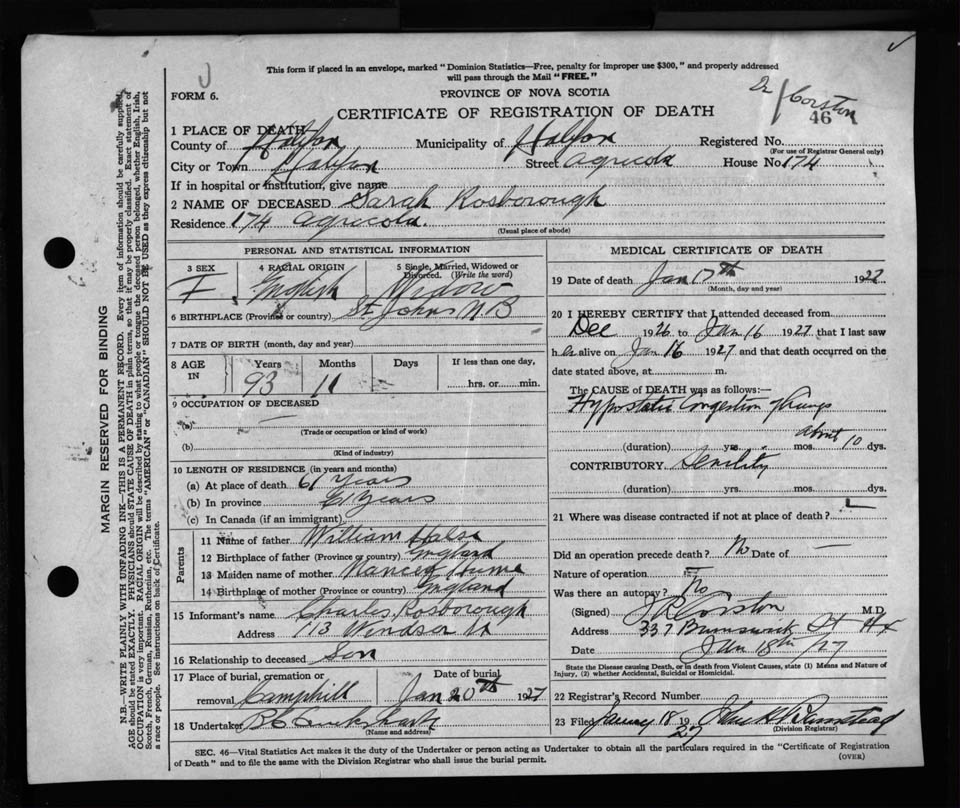 This form if placed in an envelope, marked "Dominion Statistics—Free, penalty for improper use $300," and properly addressed
will pass through the Mail "FREE."
FORM 6.
PROVINCE OF NOVA SCOTIA
Dr Corston
CERTIFICATE OF REGISTRATION OF DEATH
46
1 PLACE OF DEATH
County of Halifax Municipality of Halifax Registered No.
(For use of Registrar General only)
City or Town Halifax Street Agricola House No. 174
If in hospital or institution, give name
2 NAME OF DECEASED Sarah Rosborough
Residence 174 Agricola.
(Usual place of abode)
PERSONAL AND STATISTICAL INFORMATION
3 SEX 4 RACIAL ORIGIN 5 Single, Married, Widowed or
Divorced. (Write the word)
F. English Widow
6 BIRTHPLACE (Province or country) St Johns N B
7 DATE OF BIRTH (month, day and year)
8 AGE IN Years Months Days If less than one day,
93 11 hrs. or min.
9 OCCUPATION OF DECEASED
(a) —
(Trade or occupation or kind of work)
(b)
(Kind of industry)
10 LENGTH OF RESIDENCE (in years and months)
(a) At place of death 61 years
(b) In province 61 years
(c) In Canada (if an immigrant)
Parents
11 Name of father William
12 Birthplace of father (Province or country) England
13 Maiden name of mother Hume
14 Birthplace of mother (Province or country) England
15 Informant's name Charles Rosborough
Address 113 Windsor St
16 Relationship to deceased Son
17 Place of burial, cremation or Date of burial
removal Camphill Jan 20th 1927
18 Undertaker
(Name and address)
MEDICAL CERTIFICATE OF DEATH
19 Date of death Jan 17th 1927
(Month, day and year)
20 I HEREBY CERTIFY that I attended deceased from
Dec 1926 to Jan 16 1927 that I last saw
her alive on Jan 16 1927 and that death occurred on the
date stated above, at m.
The CAUSE of DEATH was as follows:—
Hypostatic Congestion of Lungs
(duration) yrs. mos. about 10 dys.
CONTRIBUTORY Senility
(duration) yrs. mos. dys.
21 Where was disease contracted if not at place of death?
Did an operation precede death? No Date of —
Nature of operation —
Was there an autopsy? No
(Signed) Corston M.D.
Address 337 Brunswick St Hx
Date Jan 18th /27
State the Disease causing Death, or in death from Violent Causes, state (1) Means and Nature of
Injury, (2) whether Accidental, Suicidal or Homicidal.
22 Registrar's Record Number
23 Filed January 18 1927
(Division Registrar)
SEC. 46—Vital Statistics Act makes it the duty of the Undertaker or person acting as Undertaker to obtain all the particulars required in the "Certificate of Registration
of Death" and to file the same with the Division Registrar who shall issue the burial permit.
(OVER)
MARGIN RESERVED FOR BINDING
N.B.—WRITE PLAINLY WITH UNFADING INK—THIS IS A PERMANENT RECORD. Every item of information should be carefully supplied.
AGE should be stated EXACTLY. PHYSICIANS should STATE CAUSE OF DEATH in plain terms, so that it may be properly classified. Exact statement of
OCCUPATION is very important. RACIAL ORIGIN will be described by stating to what people or tongue the deceased person belonged, whether English, Irish,
Scotch, French, German, Russian, Ruthenian, etc. The terms "AMERICAN" or "CANADIAN" SHOULD NOT BE USED as they express citizenship but not
a race or people. See instructions on back of certificate.